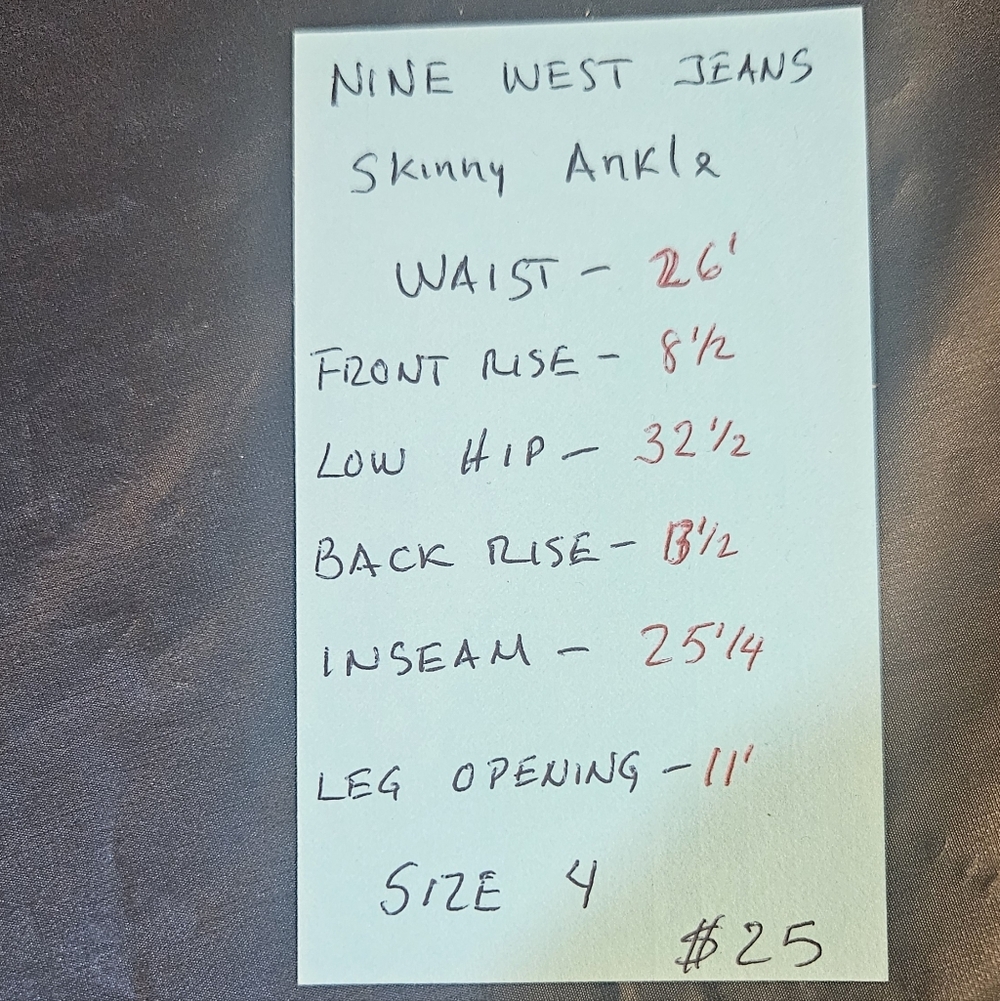 NINE WEST JEANS
Skinny Ankle
WAIST - 26'
FRONT RISE - 8 1/2
LOW HIP - 32 1/2
BACK RISE - 13 1/2
INSEAM - 25 1/4
LEG OPENING - 11'
SIZE 4
$25